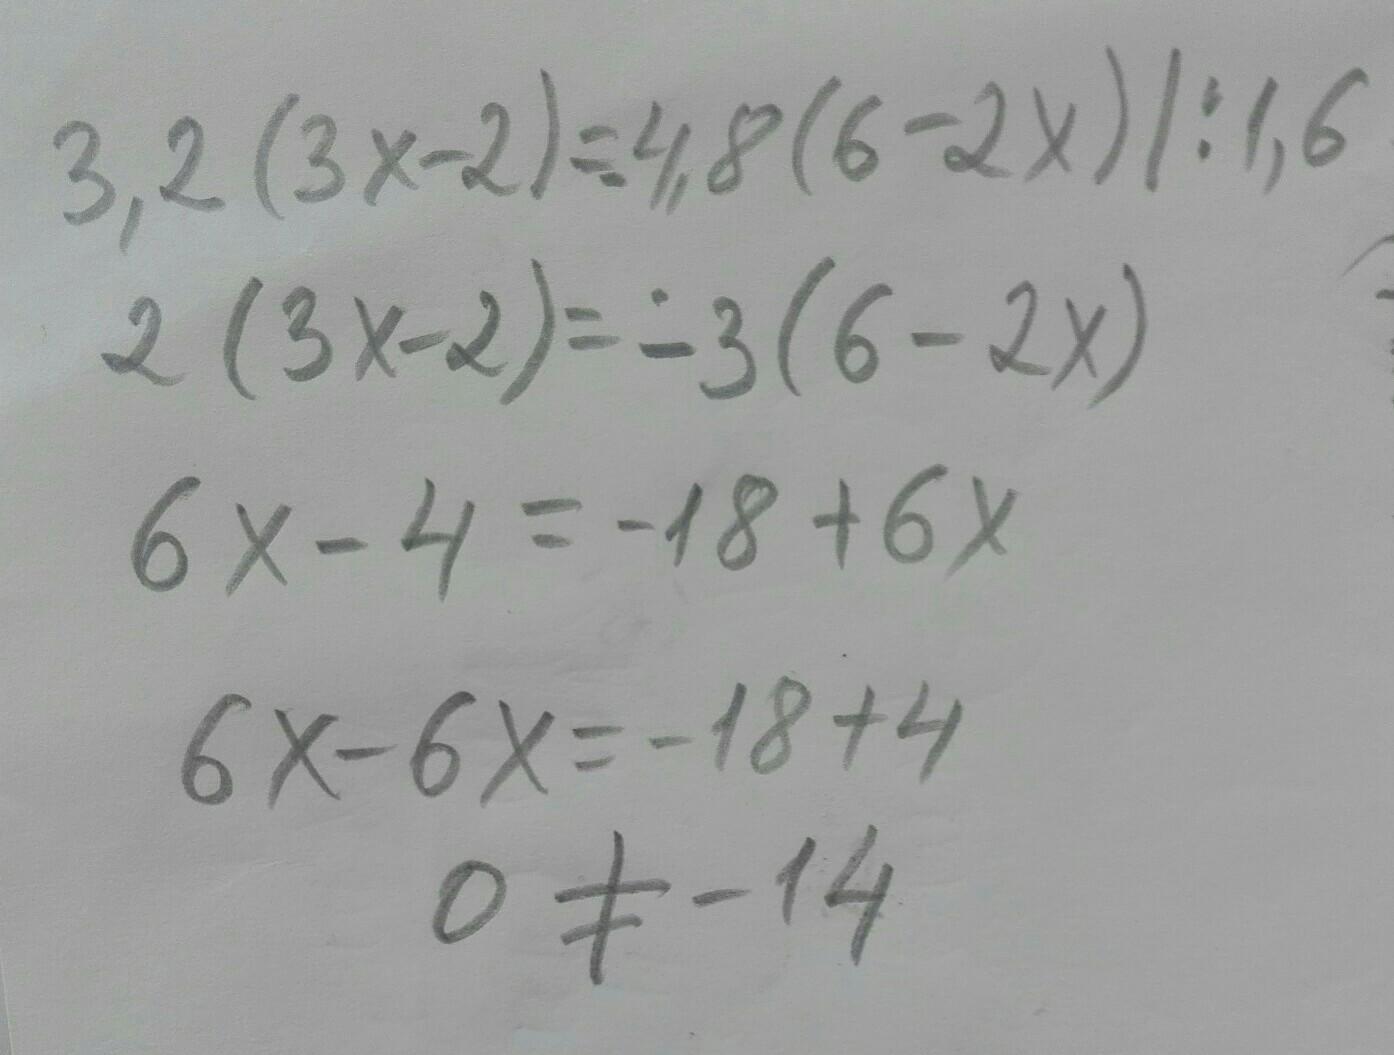 3,2(3x-2)=4,8(6-2x)|:1,6
2(3x-2)=-3(6-2x)
6x-4=-18+6x
6x-6x=-18+4
0≠-14